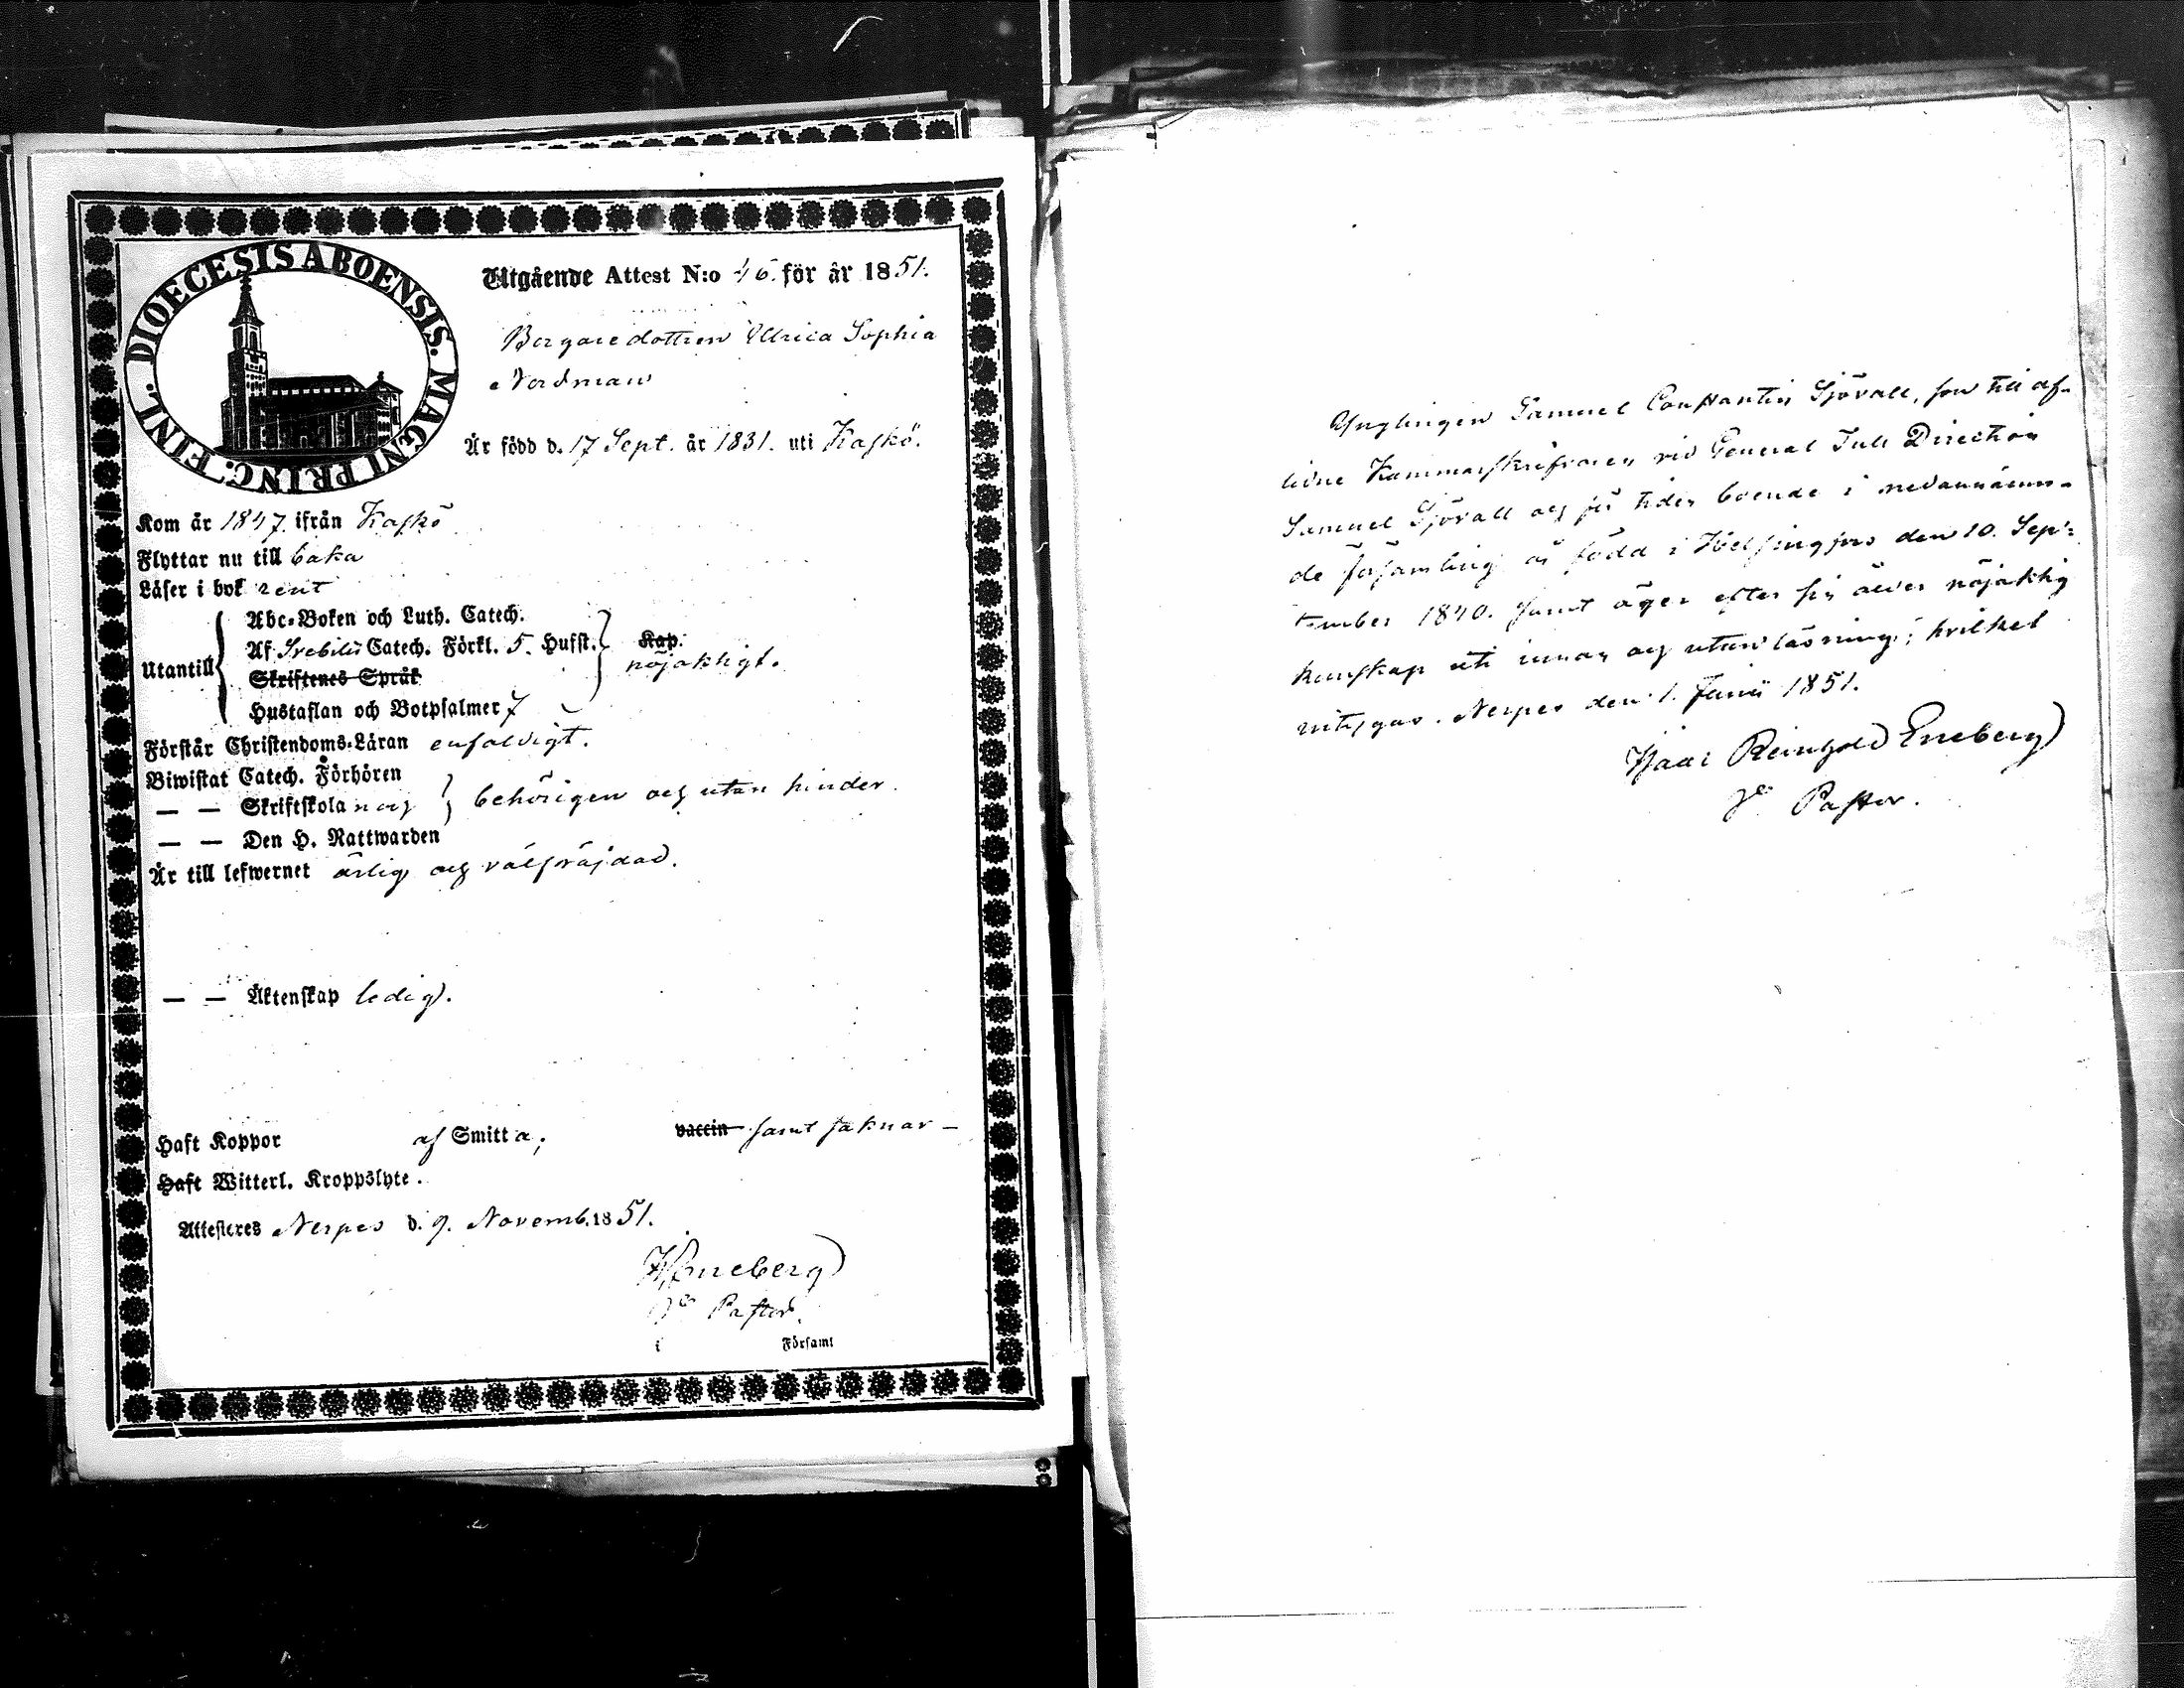 DIOECESIS ABOENSIS. MAGNI PRINC. FINL.
Utgående Attest N:o 46. för år 1851.
Borgaredottren Ulrica Sophia
Nordman
Är född d. 17 Sept. år 1831. uti Kaskö.
Kom år 1847. ifrån Kaskö
Flyttar nu till baka
Läser i bok rent
Utantill
Abc-Boken och Luth. Catech.
Af Svebilii Catech. Förkl. 5. Hufst. Kap.
nöjaktigt.
Skriftenes Språk
Hustaflan och Botpsalmer 7
Förstår Christendoms-Läran enfaldigt.
Biwistat Catech. Förhören
— — Skriftskola och behörigen och utan hinder.
— — Den H. Nattwarden
Är till lefwernet ärlig och välfräjdad.
— — Äktenskap ledig.
Haft Koppor af Smitta; vaccin samt saknar —
Haft Witterl. Kroppslyte.
Attesteres Nerpes d. 9. Novemb. 1851.
Eneberg
Pastor.
i Församl
Ynglingen Samuel Constantin Sjövall, son till af-
lidne Kammarskrifvaren vid General Tull Direction
Samuel Sjövall och för tiden boende i nedannämn-
de församling är född i Helsingfors den 10. Sep-
tember 1840. samt äger efter sin ålder nöjaktig
kunskap uti innan och utanläsning; hvilket
vitsgas. Nerpes den 1. Junii 1851.
Isaac Reinhold Eneberg
Pastor.